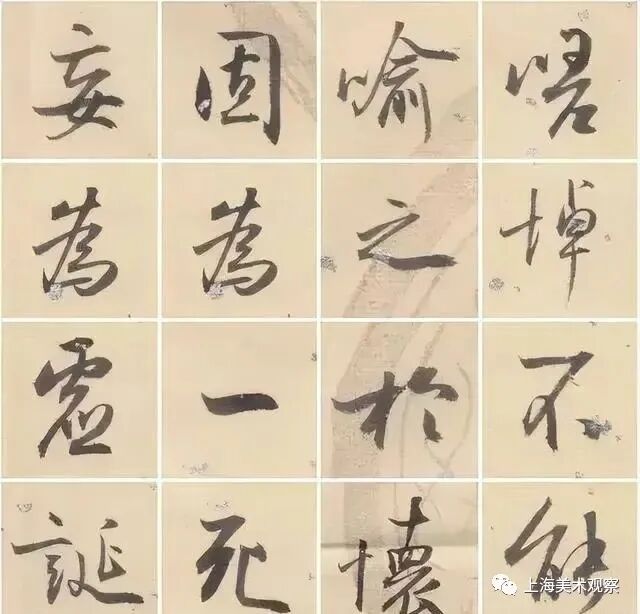 嗟悼不能
喻之於懷
固為一死
妄為虛誕
上海美术观察